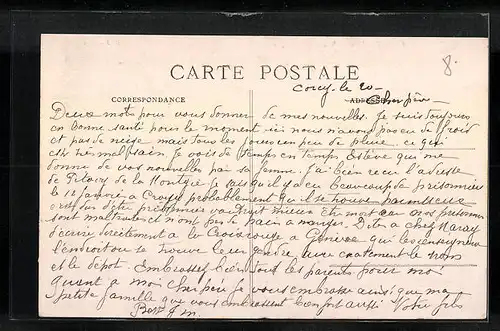 8.
CARTE POSTALE
Coucy le 20
CORRESPONDANCE
ADRESSE
Cher père
Deux mots pour vous donner de mes nouvelles. Je suis toujours
en bonne santé pour le moment ici nous n'avons pas eu de froid
et pas de neige mais tous les jours un peu de pluie ce qui
est très malsain. Je vois de temps en temps Estève qui me
donne de vos nouvelles par sa femme. J'ai bien reçu l'adresse
de de la je sais qu'il y a eu beaucoup de prisonniers
le 12 janvier a probablement qu'il se trouve
d'être prisonnier vaudrait mieux être mort car nos prisonniers
sont maltraités et n'ont pas de pain a manger. Dites a chez
d'écrire directement a la Croix rouge a Genève qui les
l'endroit ou se trouve leur gendre, exactement le nom
et le dépot. Embrassez bien tous les parents pour moi
quant a moi cher père je vous embrasse ainsi que ma
petite famille que vous embrasserez bien fort aussi Votre fils